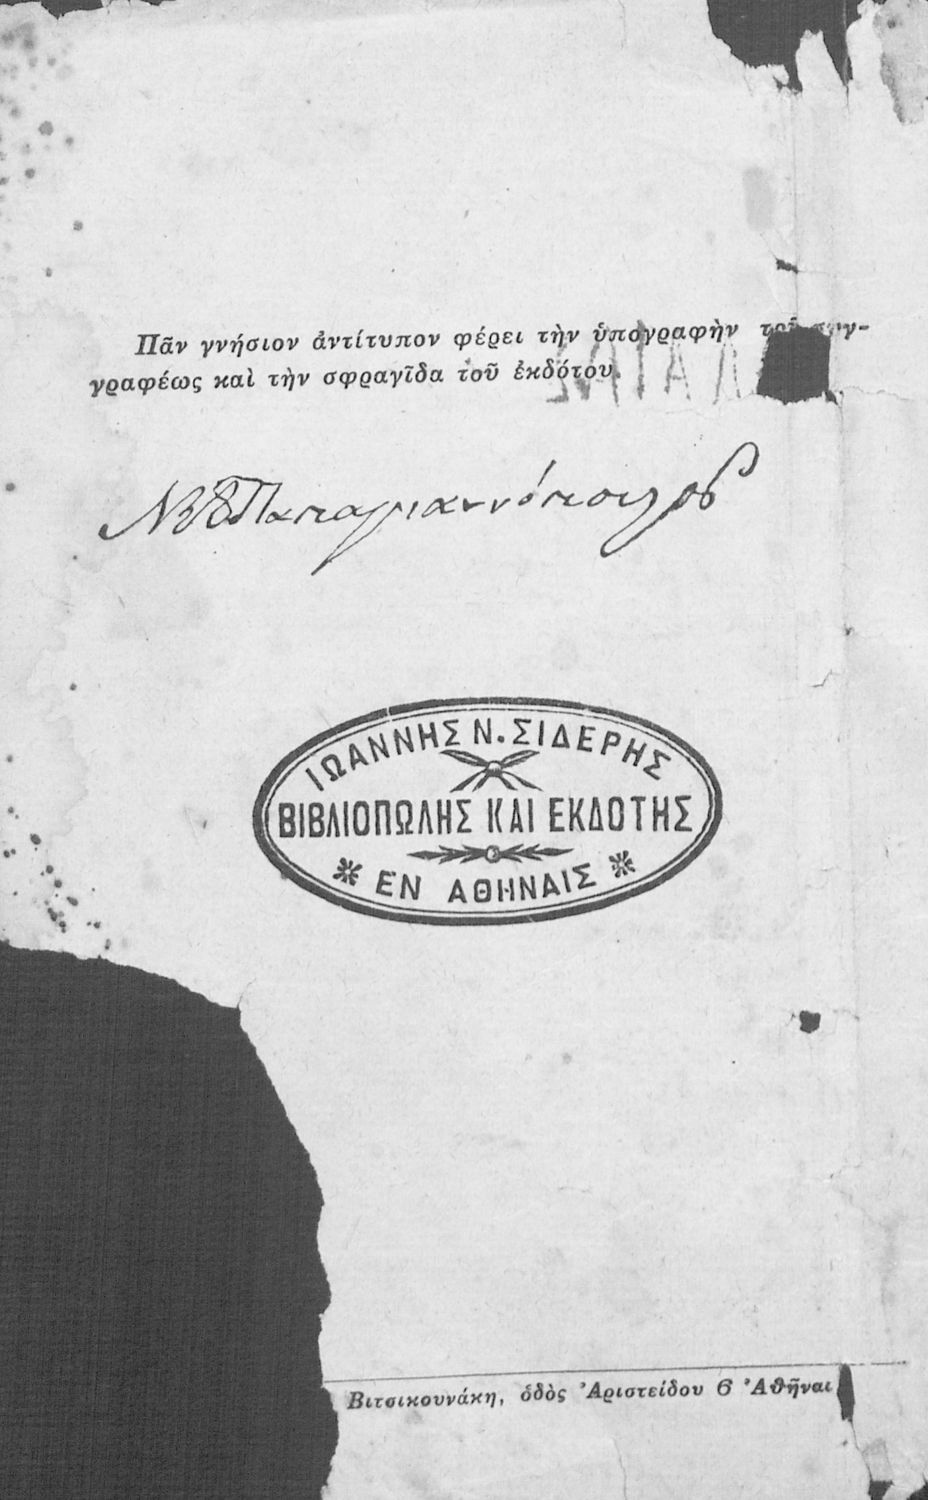 Πᾶν γνήσιον ἀντίτυπον φέρει τὴν ὑπογραφὴν τοῦ συγ-
γραφέως καὶ τὴν σφραγῖδα τοῦ ἐκδότου.
Παπαγιαννόπουλος
ΙΩΑΝΝΗΣ Ν. ΣΙΔΕΡΗΣ
ΒΙΒΛΙΟΠΩΛΗΣ ΚΑΙ ΕΚΔΟΤΗΣ
ΕΝ ΑΘΗΝΑΙΣ
Βιτσικουνάκη, ὁδὸς Ἀριστείδου 6 Ἀθῆναι